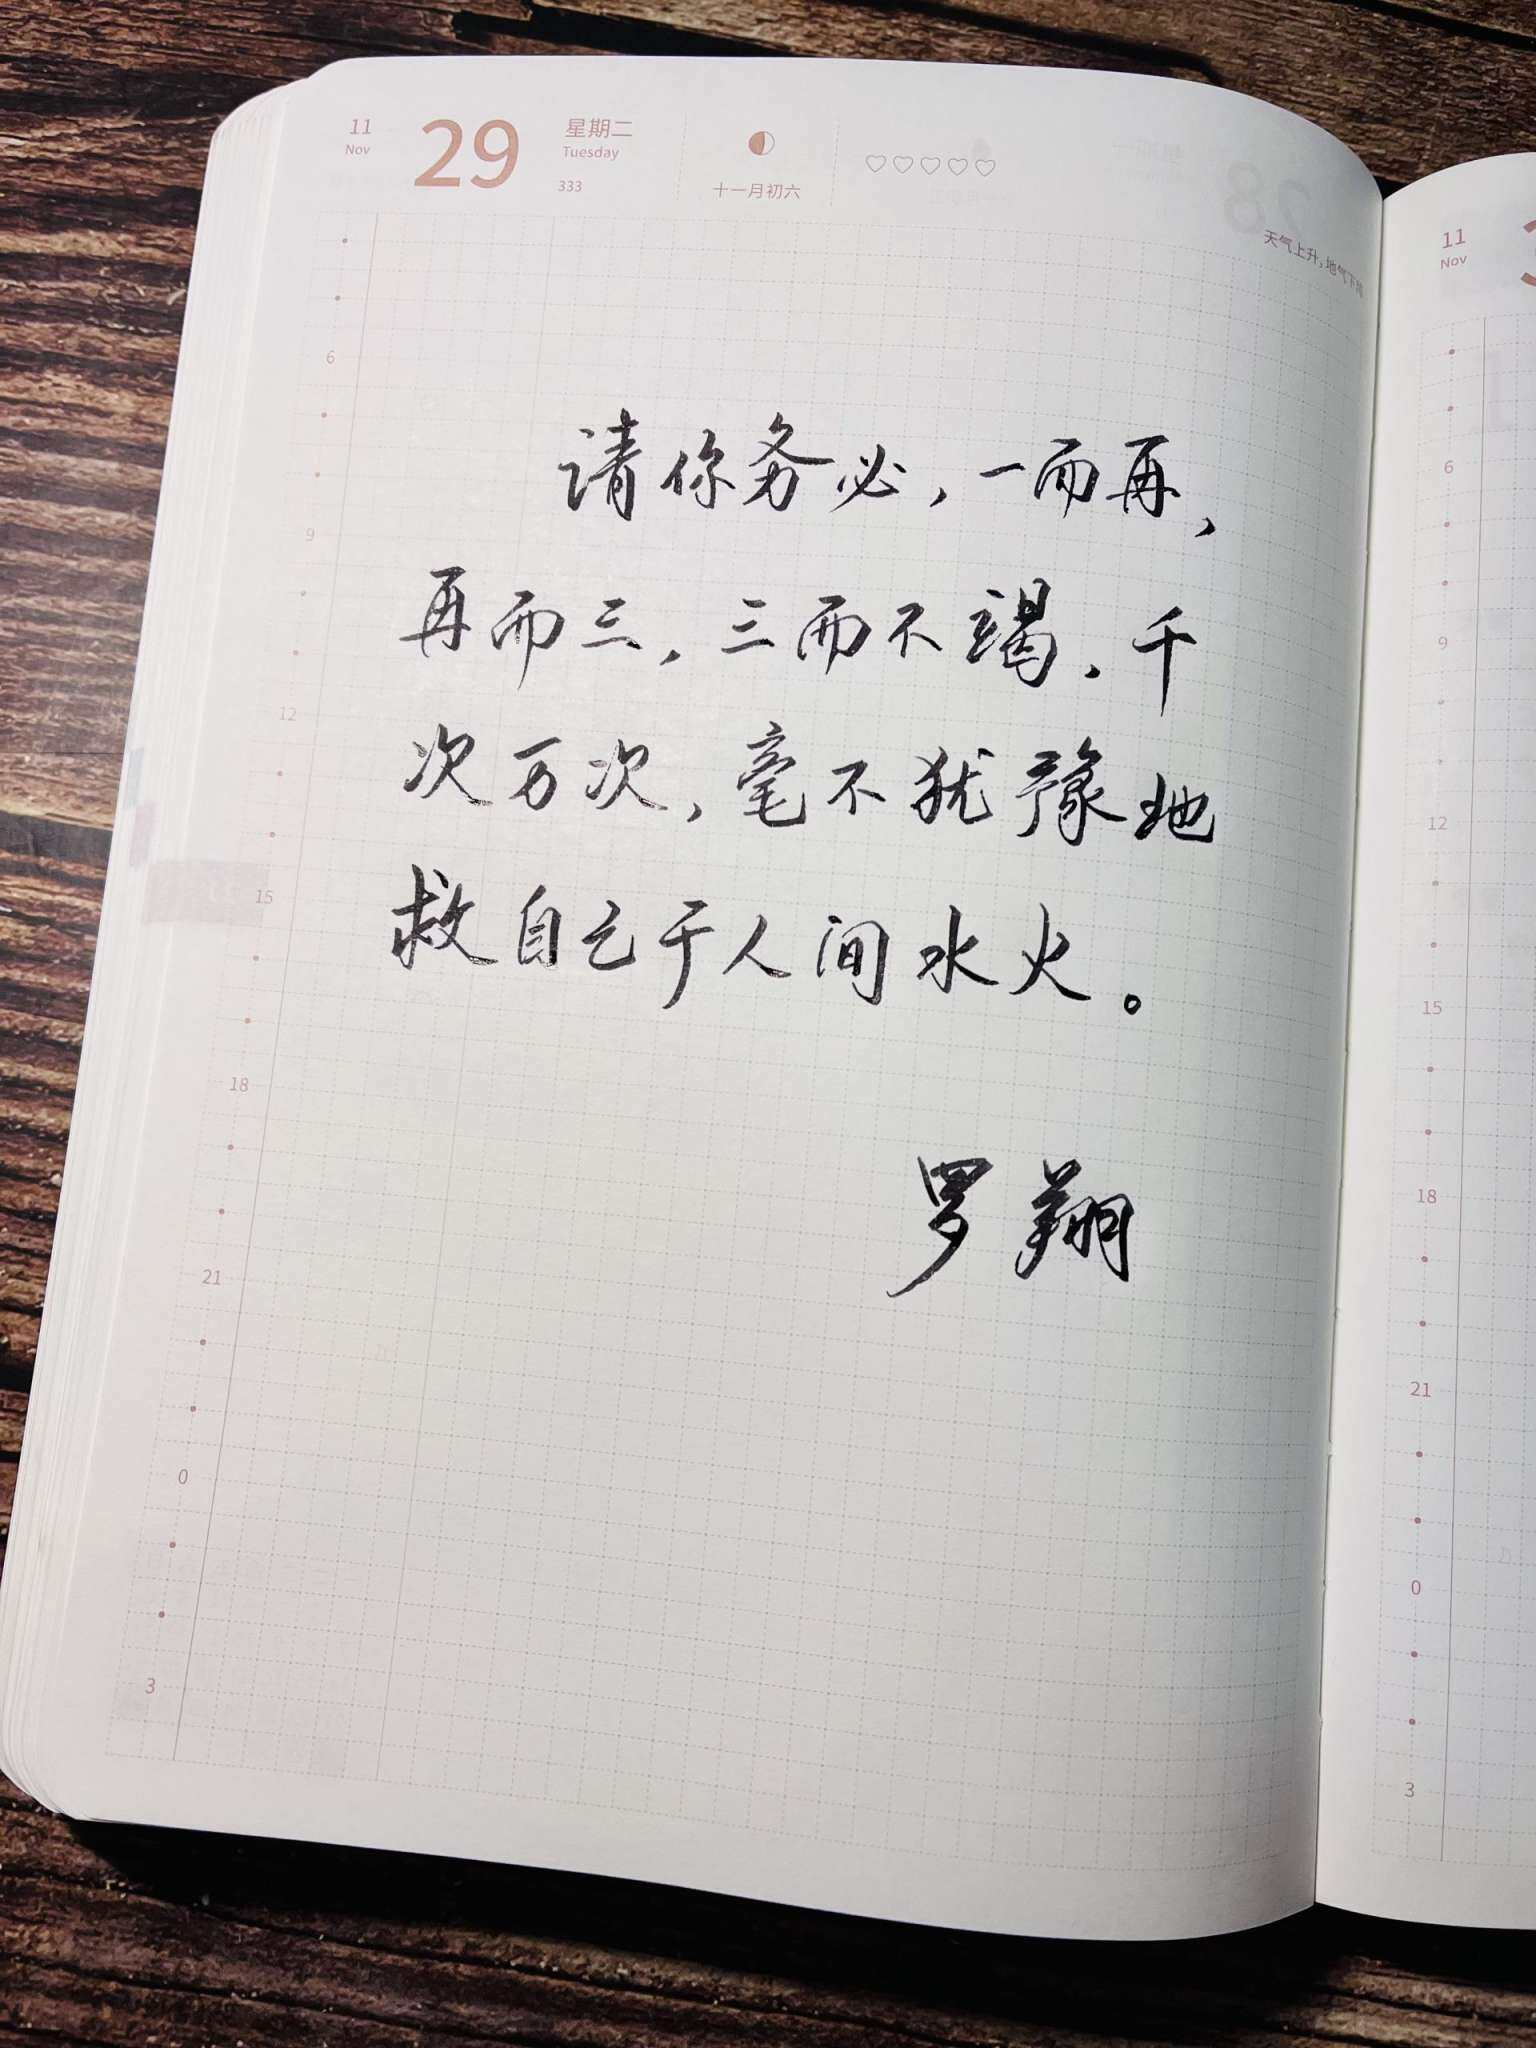 11
Nov
29
星期二
Tuesday
333
十一月初六
天气上升,地气下降
请你务必,一而再,
再而三,三而不竭,千
次万次,毫不犹豫地
救自己于人间水火。
罗翔
6
9
12
15
18
21
0
3
11
Nov
6
9
12
15
18
21
0
3